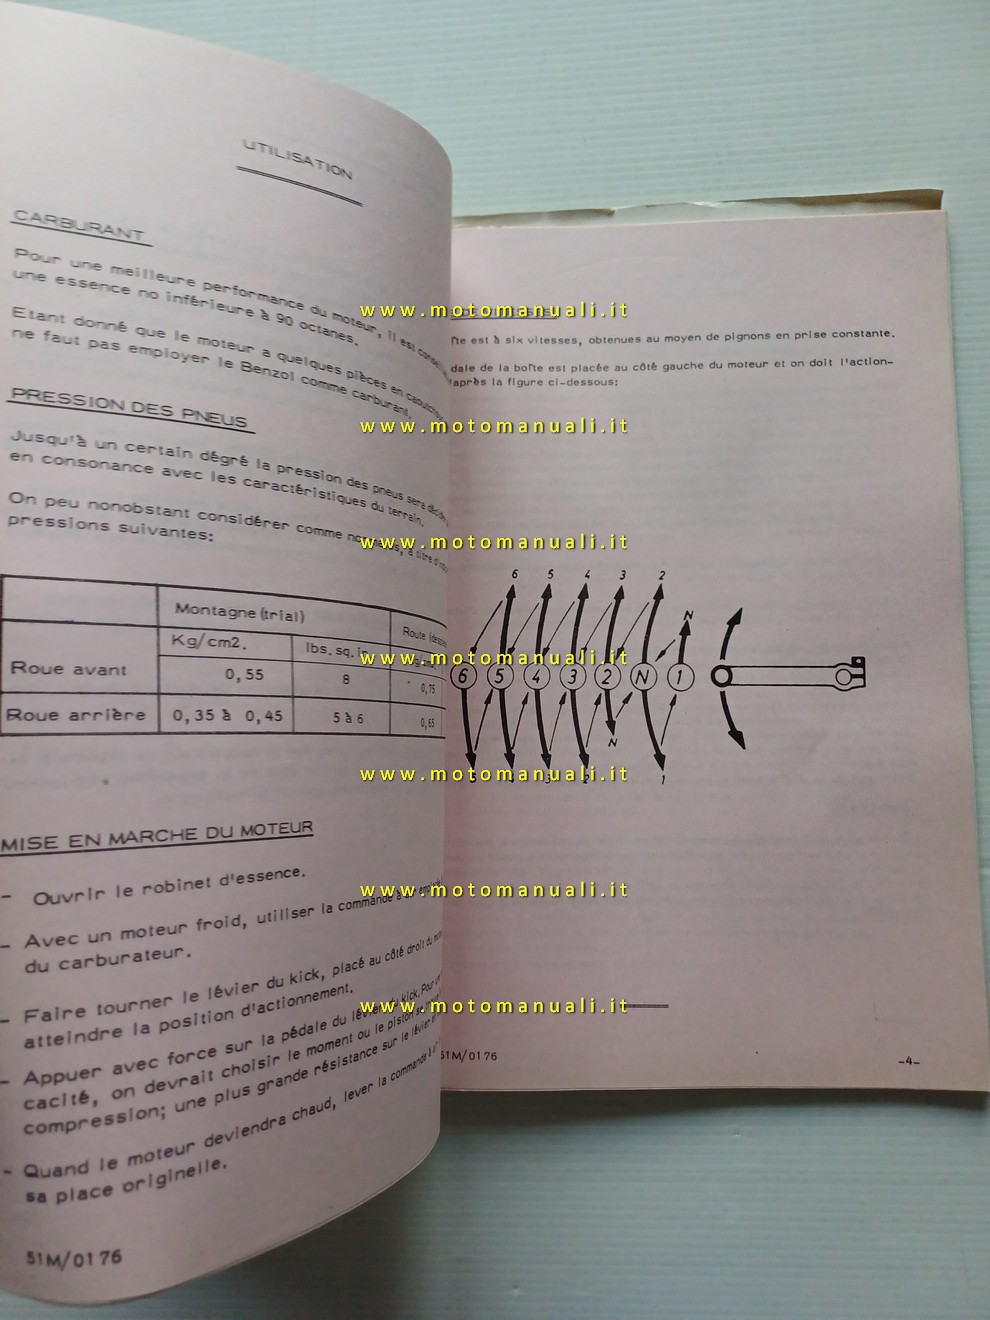 UTILISATION
CARBURANT
Pour une meilleure performance du moteur, il est
une essence no inférieure à 90 octanes.
Etant donné que le moteur a quelques pièces en
ne faut pas employer le Benzol comme carburant.
PRESSION DES PNEUS
Jusqu'à un certain dégré la pression des pneus sera
en consonance avec les caractéristiques du terrain.
On peu nonobstant considérer comme
pressions suivantes:
Montagne (trial)
Route
Kg/cm2.
lbs. sq. in
Roue avant
0,55
8
0,75
Roue arrière
0,35 à 0,45
5 à 6
0,65
MISE EN MARCHE DU MOTEUR
- Ouvrir le robinet d'essence.
- Avec un moteur froid, utiliser la commande
du carburateur.
- Faire tourner le lévier du kick, placé au côté droit du
atteindre la position d'actionnement.
- Appuer avec force sur la pédale du lévier du kick. Pour
cacité, on devrait choisir le moment ou le piston se
compression; une plus grande résistance sur le lévier
- Quand le moteur deviendra chaud, lever la commande à
sa place originelle.
51M/0176
est à six vitesses, obtenues au moyen de pignons en prise constante.
dale de la boîte est placée au côté gauche du moteur et on doit l'action-
après la figure ci-dessous:
6 5 4 3 2 N
6 5 4 3 2 N 1
N 1
51M/0176
-4-
www.motomanuali.it
www.motomanuali.it
www.motomanuali.it
www.motomanuali.it
www.motomanuali.it
www.motomanuali.it
www.motomanuali.it